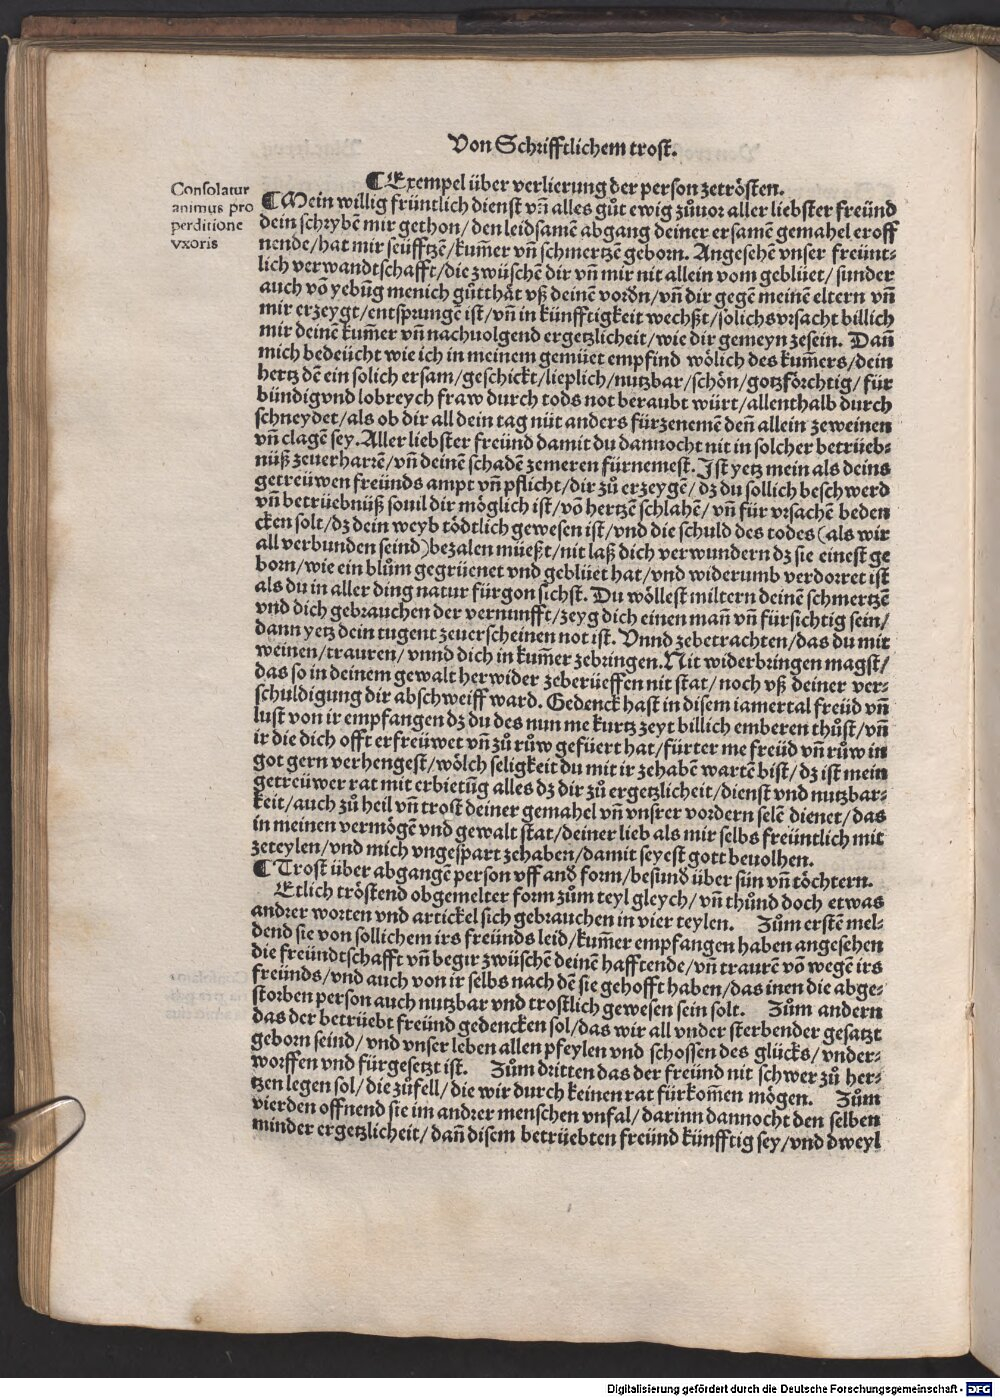 Von Schrifftlichem trost.
Consolatur
animus pro
perditione
vxoris
¶Exempel über verlierung der person zetrösten.
¶Mein willig früntlich dienst vñ alles gůt ewig zůuor aller liebster freünd
dein schrybẽ mir gethon/den leidsamẽ abgang deiner ersamẽ gemahel eroff
nende/hat mir seüfftzẽ/kum̃er vñ schmertzẽ geborn. Angesehẽ vnser freünt⸗
lich verwandtschafft/die zwüschẽ dir vñ mir nit allein vom geblüet/sunder
auch võ yebũg menich gůtthät vß deinẽ vordn/vñ dir gegẽ meinẽ eltern vñ
mir erzeygt/entsprungẽ ist/vñ in künfftigkeit wechßt/solichs vrsacht billich
mir deinẽ kum̃er vñ nachuolgend ergetzlicheit/wie dir gemeyn zesein. Dañ
mich bedeücht wie ich in meinem gemüet empfind wölich des kum̃ers/dein
hertz dẽ ein solich ersam/geschickt/lieplich/nutzbar/schön/gotzförchtig/für
bündig vnd lobreych fraw durch tods not beraubt würt/allenthalb durch
schneydet/als ob dir all dein tag nüt anders fürzenemẽ deñ allein zeweinen
vñ clagẽ sey. Aller liebster freünd damit du dannocht nit in solcher betrüeb⸗
nüß zeuerharrẽ/vñ deinẽ schadẽ zemeren fürnemest. Ist yetz mein als deins
getreüwen freünds ampt vñ pflicht/dir zů erzeygẽ/dz du sollich beschwerd
vñ betrüebnüß souil dir möglich ist/võ hertzẽ schlahẽ/vñ für vrsachẽ beden
cken solt/dz dein weyb tödtlich gewesen ist/vnd die schuld des todes (als wir
all verbunden seind) bezalen müeßt/nit laß dich verwundern dz sie einest ge
born/wie ein blům gegrüenet vnd geblüet hat/vnd widerumb verdorret ist
als du in aller ding natur fürgon sichst. Du wöllest miltern deinẽ schmertzẽ
vnd dich gebrauchen der vernunfft/zeyg dich einen mañ vñ fürsichtig sein/
dann yetz dein tugent zeuerscheinen not ist. Vnnd zebetrachten/das du mit
weinen/trauren/vnnd dich in kum̃er zebringen. Nit widerbringen magst/
das so in deinem gewalt her wider zeberüeffen nit stat/noch vß deiner ver⸗
schuldigung dir abschweiff ward. Gedenck hast in disem iamertal freüd vñ
lust von ir empfangen dz du des nun me kurtz zeyt billich emberen thůst/vñ
ir die dich offt erfreüwet vñ zů růw gefüert hat/fürter me freüd vñ růw in
got gern verhengest/wölch seligkeit du mit ir zehabẽ wartẽ bist/dz ist mein
getreüwer rat mit erbietũg alles dz dir zů ergetzlicheit/dienst vnd nutzbar⸗
keit/auch zů heil vñ trost deiner gemahel vñ vnsrer vordern selẽ dienet/das
in meinen vermögẽ vnd gewalt stat/deiner lieb als mir selbs freüntlich mit
zeteylen/vnd mich vngespart zehaben/damit seyest gott beuolhen.
¶Trost über abgangẽ person vff and form/besund über sün vñ töchtern.
Etlich tröstend obgemelter form zům teyl gleych/vñ thůnd doch etwas
andrer worten vnd artickel sich gebrauchen in vier teylen. Zům erstẽ mel⸗
dend sie von sollichem irs freünds leid/kum̃er empfangen haben angesehen
die freündtschafft vñ begir zwüschẽ deinẽ hafftende/vñ traurẽ võ wegẽ irs
freünds/vnd auch von ir selbs nach dẽ sie gehofft haben/das inen die abge⸗
storben person auch nutzbar vnd trostlich gewesen sein solt. Zům andern
das der betrüebt freünd gedencken sol/das wir all vnder sterbender gesatzt
geborn seind/vnd vnser leben allen pfeylen vnd schossen des glücks/vnder⸗
worffen vnd fürgesetzt ist. Zům dritten das der freünd nit schwer zů her⸗
tzen legen sol/die zůfell/die wir durch keinen rat fürkom̃en mögen. Zům
vierden offnend sie im andrer menschen vnfal/darinn dannocht den selben
minder ergetzlicheit/dañ disem betrüebten freünd künfftig sey/vnd dweyl
Digitalisierung gefördert durch die Deutsche Forschungsgemeinschaft - DFG